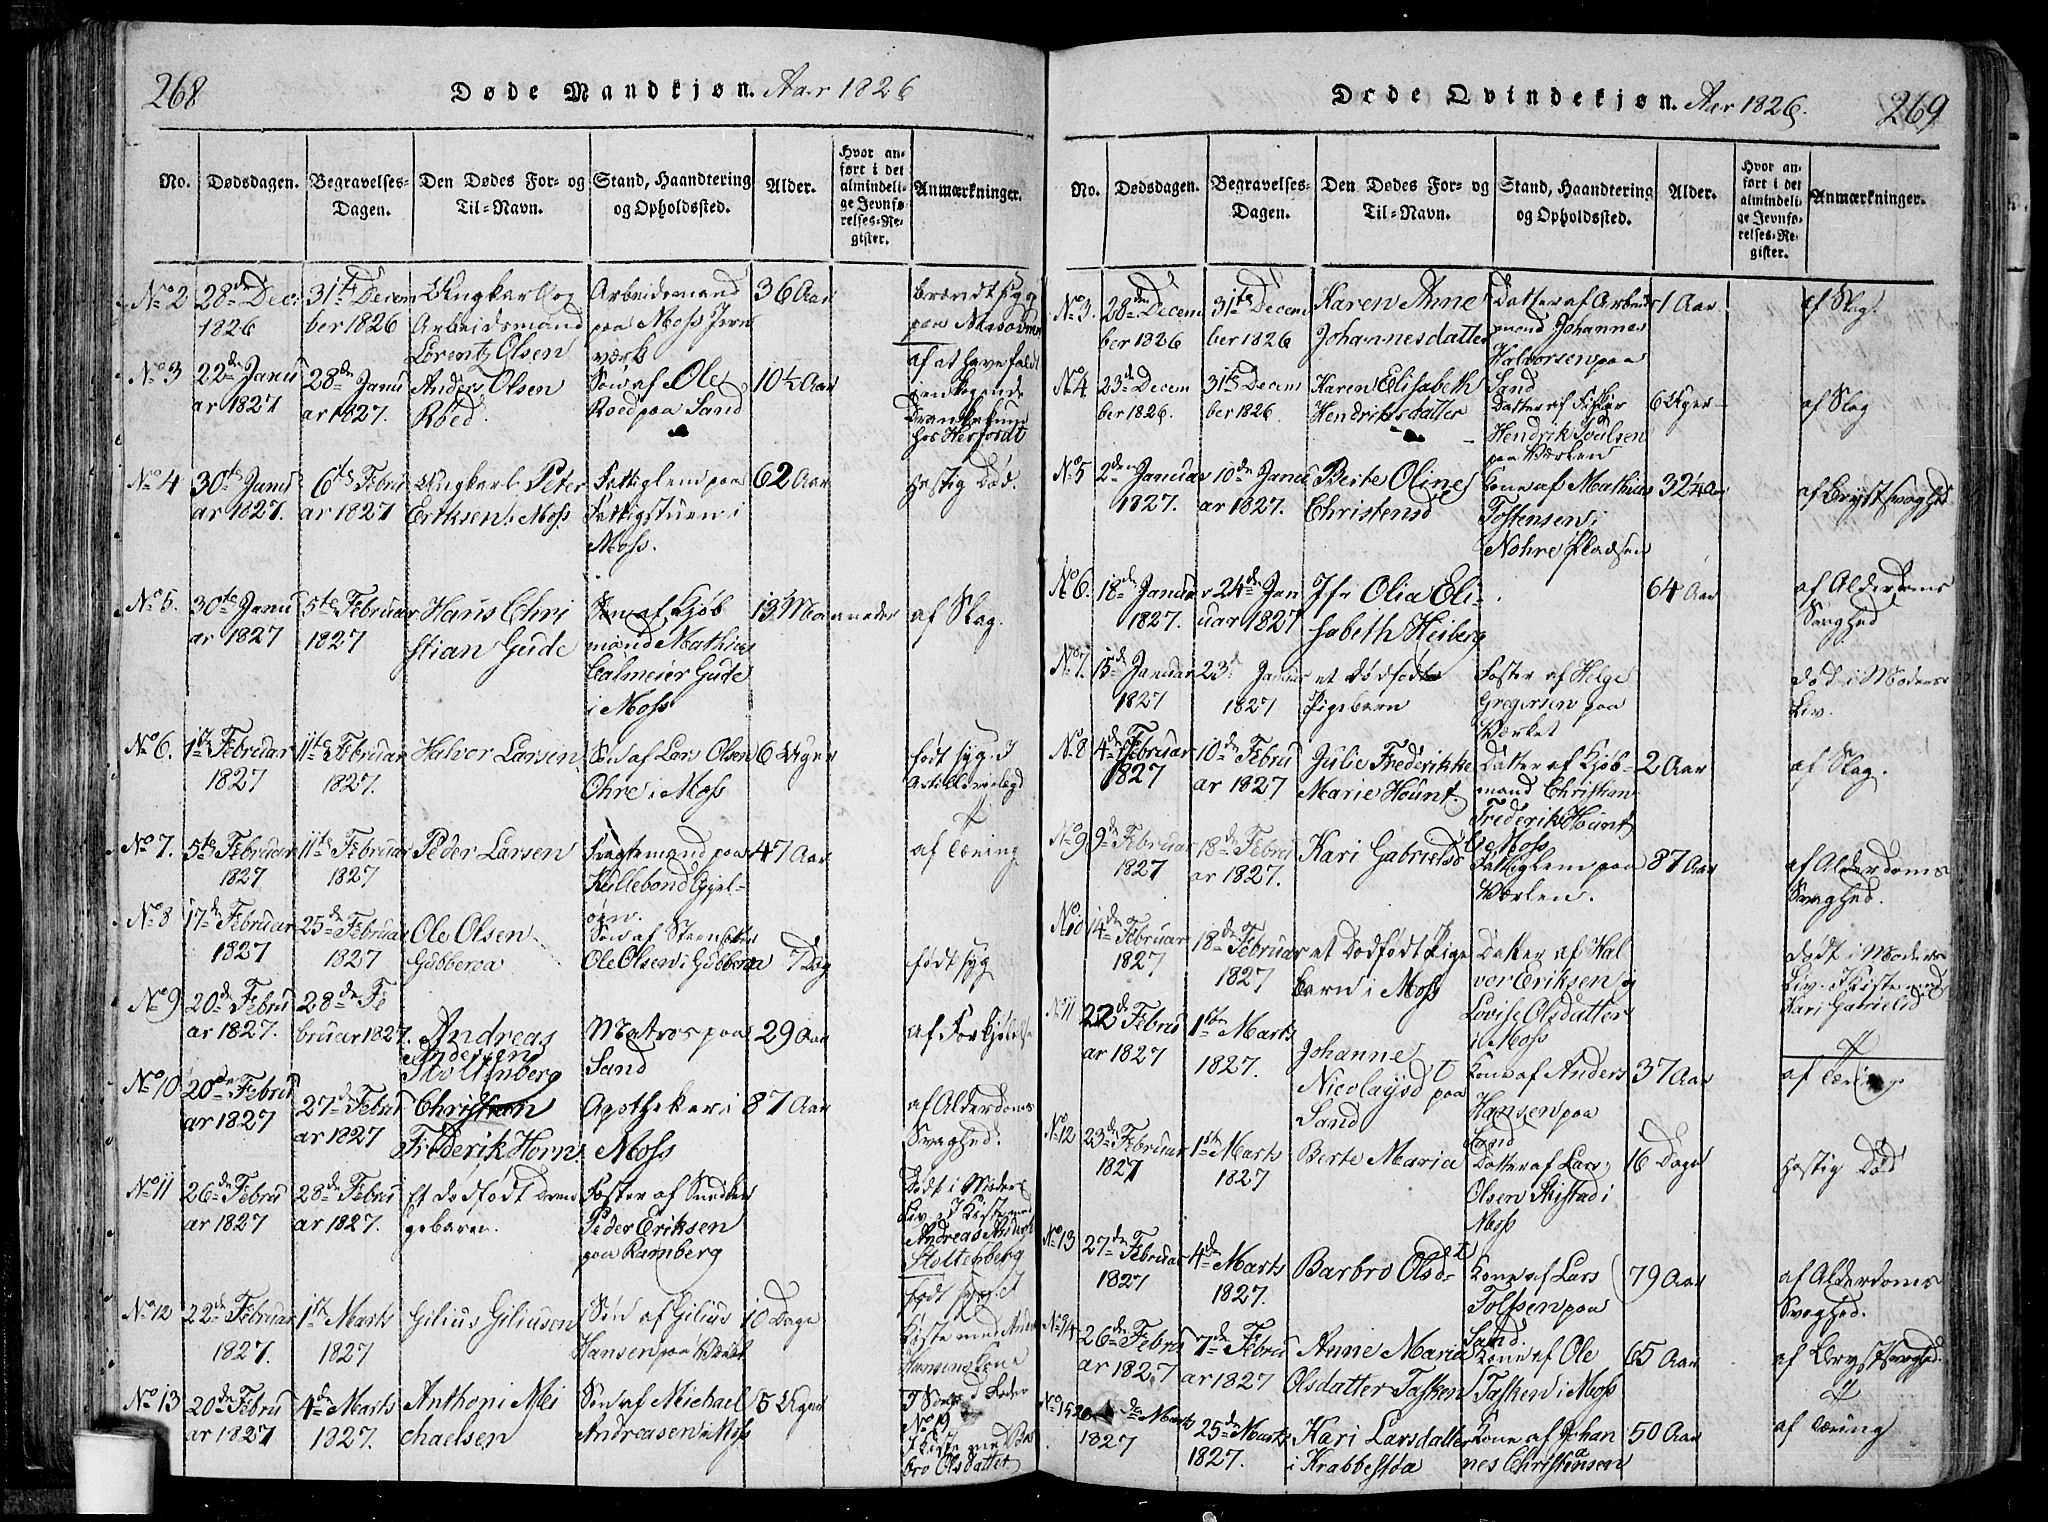 268
Døde Mandkjøn. Aar 1826
No.
Dødsdagen.
Begravelses-
Dagen.
Den Dødes For- og
Til-Navn.
Stand, Haandtering
og Opholdssted.
Alder.
Hvor an-
ført i det
almindeli-
ge Jevnfø-
relses-Re-
gister.
Anmærkninger.
No 2
28de Decr
1826
31te Decem
ber 1826
Ungkarl og
Arbeidsmand
Lorentz Olsen
Arbeidsmand
paa Moss Jern
værk
36 Aar
No 3
22de Janu
ar 1827
28de Janu
ar 1827.
Anders Olsen
Röed.
Søn af Ole
Roed paa Sand
10½ Aar
af at have faldt
hos Herfordt
No 4
30te Janu
ar 1827.
6te Febru
ar 1827
Ungkarl Peter
Eriksen i Moss
Fattiglem paa
Fattigstuen i
Moss.
62 Aar
Hastig Død.
No 5.
30te Janu
ar 1827
5te Februar
1827
Hans Chri
stian Gude
Søn af Kjøb
mand Mathias
Calmeier Gude
i Moss
13 Maaneder
af Slag.
No 6.
1ste Februar
1827
11te Februar
1827.
Halvor Larsen
Søn af Lars Olsen
Ohre i Moss
6 Uger
født syg. I
No 7.
5te Februar
1827
11te Februar
1827
Peder Larsen
paa
Kullebond Gjel-
øen.
47 Aar
af Tæring
No 8
17de Februar
1827
25de Februar
1827
Ole Olsen
Gubberøa
Søn af
Ole Olsen i Gubberøa
7 Dag
født syg
No 9
20de Febru
ar 1827.
28de Fe
bruar 1827.
Andreas
Andersen
Stoltenberg
Matros paa
Sand
29 Aar
af Forkjølelse
No 10
20de Febru
ar 1827
27de Febru
ar 1827
Christian
Frederik Horn.
Apotheker i
Moss
87 Aar
af Alderdoms
Svaghed.
No 11
26de Febru
ar 1827
28de Febru
ar 1827.
Et dødfødt Dren
gebarn.
Foster af Snedker
Peder Eriksen
paa Ramberg
Dødt i Moders
Liv. I Kiste med
Andreas Anders
Stoltenberg
No 12
22de Februar
1827.
1ste Marts
1827
Gilius Giliusen
Søn af Gilius
Hansen paa Værket
10 Dage
født syg. et
Kiste med Anders
Hansens Kone
No 13
20de Febru
ar 1827
4de Marts
1827.
Anthoni Mi
chaelsen
Søn af Michael
Andreasen i Moss
5 Uger
I Kiste med Bar
bro Olsdatter
269
Døde Qvindekjøn. Aar 1826.
No.
Dødsdagen.
Begravelses-
Dagen.
Den Dødes For- og
Til-Navn.
Stand, Haandtering
og Opholdssted.
Alder.
Hvor an-
ført i det
almindeli-
ge Jevnfø-
relses-Re-
gister.
Anmærkninger.
No 3.
28de Decem
ber 1826
31te Decem
ber 1826
Karen Anne
Johannesdatter
Datter af Arbeids
mand Johannes
Halvorsen paa
Sand
1 Aar
af Slag.
No 4.
23de Decem
ber 1826.
31te Decem
ber 1826.
Karen Elisabeth
Hendriksdatter
Datter af Fisker
Hendrik Poulsen
paa Værken
6 Uger
af Slag
No 5
2den Januar
1827.
10de Janu
ar 1827.
Berte Oline
Christensd
Kone af Mathias
Tostensen i
Nohre Pladsen
32½ Aar
af Brystsvaghed
No 6.
18de Januar
1827.
24de Jan
uar 1827
Jfr Olia Eli-
sabeth Heiberg
64 Aar
af Alderdoms
Svaghed
No 7.
15de Januar
1827
23de Januar
1827
et Dødfødt
Pigebarn
Foster af Helge
Gregersen paa
Værket
død i Moders
Liv.
No 8
4de Februar
1827
10de Febru
ar 1827
Julie Frederikke
Marie Hount.
Datter af Kjøb-
mand Christian
Frederik Hount
i Moss
2 Aar
af Slag.
No 9
9de Februar
1827
18de Febru
ar 1827.
Kari Gabrielsd
Fattiglem paa
Værken.
87 Aar
af Alderdoms
Svaghed.
No 10
14de Februar
1827
18de Februar
1827
et Dødfødt Pige
barn i Moss
Datter af Hal
vor Eriksen og
Lovise Olsdatter
i Moss
Dødt i Moders
Liv. I Kiste med
Kari Gabrielsd
No 11
22de Febru
ar 1827
1ste Marts
1827.
Johanne
Nicolaysd paa
Sand
Kone af Anders
Hansen paa
Sand
37 Aar
af Tæring
No 12
23de Februar
1827
1ste Marts
1827
Berte Maria
Datter af Lars
Olsen Skistad i
Moss
16 Dage
Hastig Død
No 13
27de Februar
1827
4de Marts
1827.
Barbro Olsd
Kone af Lars
Tolfsen paa
Sand.
79 Aar
af Alderdoms
Svaghed.
No 14
26de Febru
ar 1827
7de Febru
ar 1827
Anne Maria
Olsdatter Tasken
Kone af Ole
Tasken i Moss
65 Aar
af Brystsvaghed
No 15
de Marts
1827
25de Marts
1827.
Kari Larsdatter
i Krabbestøa
Kone af Johan
nes Christensen
50 Aar
af Tæring